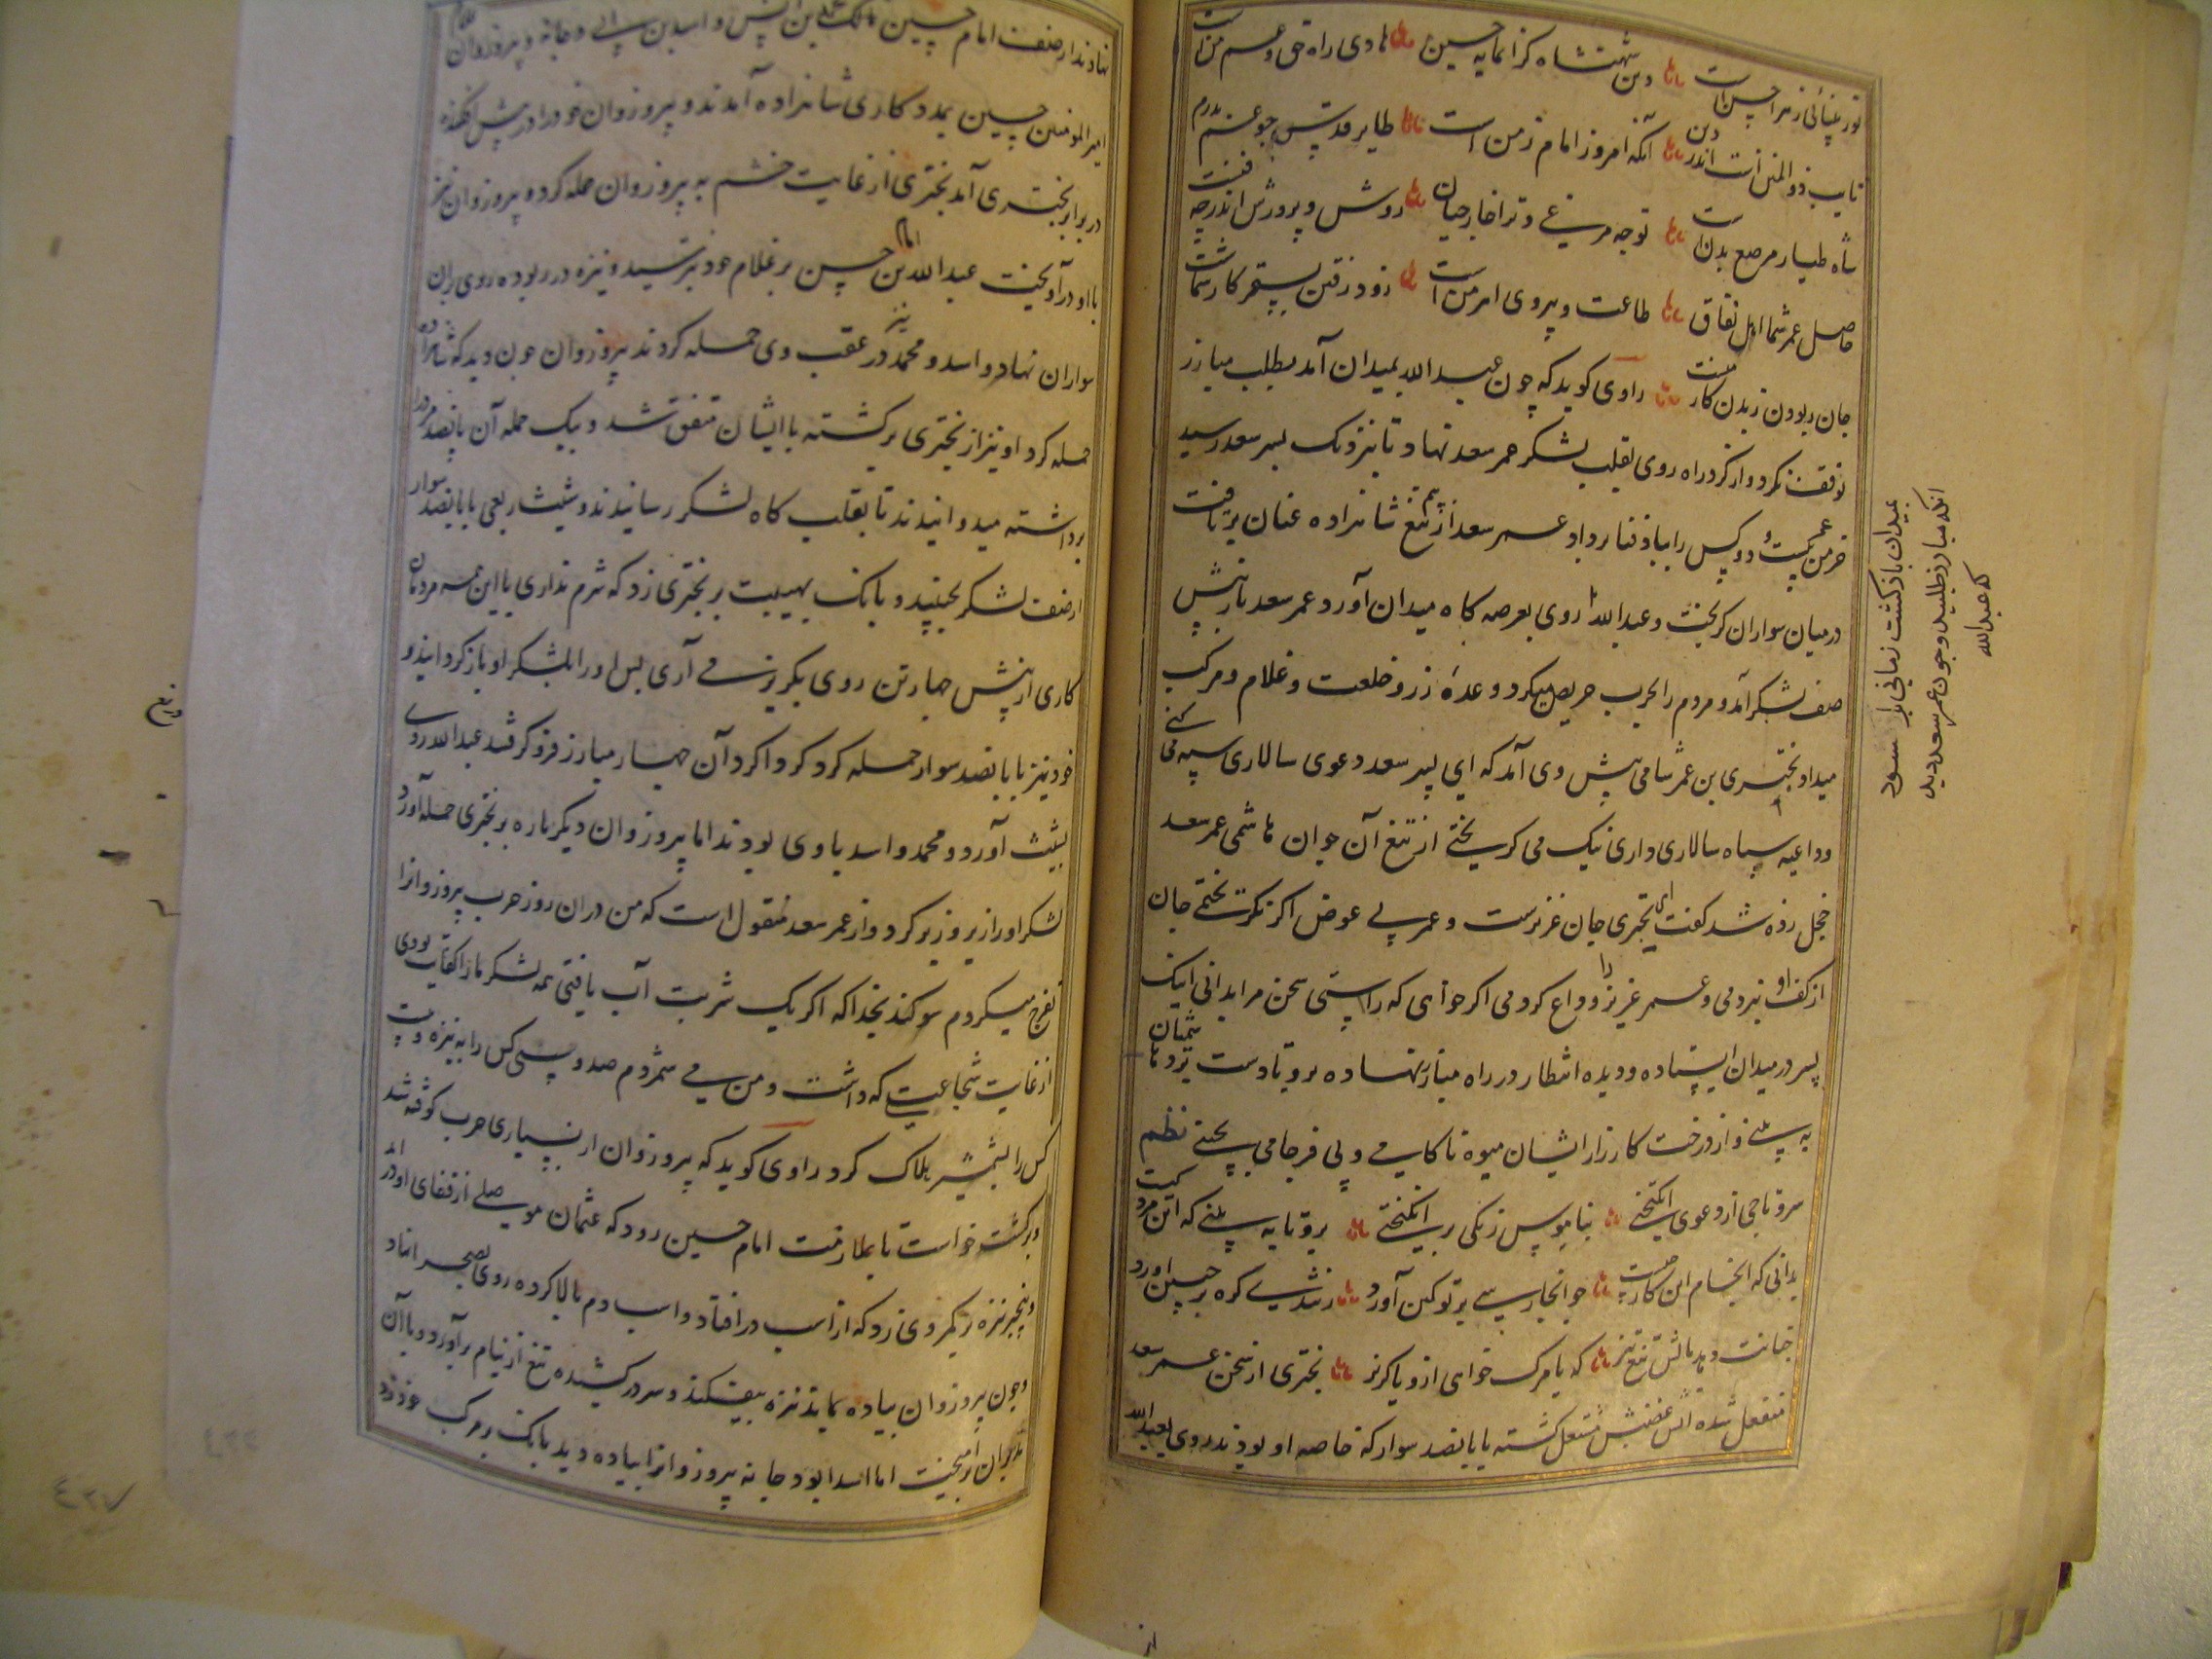 نور بینائی زهرا حسن است دین شهنشاه گرانمایه حسین هادی راه حق و عم من است
نایب ذو المنن است اندر دین آنکه امروز امام زمن است طایر قدس چو عم پدرم
شاه طیار مرصع بدن است توچه مرغی و ترا خارجیان روش و پرورش اندر چه فن است
حاصل عمر شما اهل نفاق طاعت و پیروی اهرمن است زود رفتن بسقر کار شماست
جان ربودن زبدن کار منست راوی کوید که چون عبد الله بمیدان آمد بطلب مبارز
توقف نکرد و از کرد راه روی بقلب لشکر عمر سعد نهاد تا بنزدیک پسر سعد رسید
خرمن عمر بیست و دو کس را بباد فنا برداد عمر سعد از بیم تیغ شاهزاده عنان برتافت
درمیان سواران کریخت و عبد الله روی بعرصه کاه میدان آورد عمر سعد باز پیش
صف لشکر آمد و مردم را بحرب حریص میکرد و وعده زر و خلعت و غلام و مرکب
میداد بختری بن عمر شامی پیش وی آمد که ای پسر سعد دعوی سالاری سپه می کنی
وداعیه سپاه سالاری داری نیک می کریختی از تیغ آن جوان هاشمی عمر سعد
خجل زده شد گفت ای بختری جان عزیزست و عمر بی عوض اکر نکریختمی جان
از کف او نبردمی و عمر عزیز را وداع کردمی اکر خواهی که راستی سخن مرا بدانی اینک
پسر در میدان ایستاده و دیده انتظار در راه مبارز نهاده برو تا دست برد هاشمیان
به بینی و از درخت کارزار ایشان میوه ناکامی و بی فرجامی بچینی نظم
سرو تاجی از دعوی انگیختی بناموس زنکی برانگیختی برو تا به بینی که این مرد کیست
بدانی که انجام این کار چیست جوانجا رسی بر تو کین آورد زتندی کره بر جبین آورد
جهانت دهد مالش تیغ تیز که یا مرک خواهی ازو یا کریز بختری از سخن عمر سعد
منفعل شده آتش غضبش مشتعل کشته با پانصد سوار که خاصه او بودند روی بعبد الله
میدان بازکشت زمانی بر آسود
آنکه مبارز طلبید و چون عمر سعد دید
که عبد الله
از
نهادند از صف امام حسین محمد بن انس و اسد بن ابی دجانه و پیروزان غلام
امیر المومنین حسین بمدد کاری شاهزاده آمدند و پیروزان خود را در پیش افکنده
در برابر بختری آمد بختری از غایت خشم به پیروزان حمله کرد و پیروزان نیز
با او درآویخت عبد الله بن امام حسن بر غلام خود بترسید و نیزه در ربوده روی بران
سواران نهاد و اسد و محمد نیز در عقب وی حمله کردند پیروزان چون دید که شاهزاده
حمله کرد او نیز از بختری برکشته با ایشان متفق شد و بیک حمله آن پانصد مرد را
برداشته میدوانیدند تا بقلب کاه لشکر رسانیدند و شیث ربعی با پانصد سوار
از صف لشکر بجنبید و بانک بهیبت بر بختری زد که شرم نداری با این همه مردمان
کاری از پیش چهار تن روی بکریز می آری پس او را بلشکر او باز کردانید و
خود نیز با پانصد سوار حمله کرد کرداکرد آن چهار مبارز فرو کرفتند عبد الله روی
بشیث آورد و محمد و اسد با وی بودند اما پیروزان دیکر باره بر بختری حمله آورد و
لشکر او را زیر و زبر کرد و از عمر سعد منقول است که من دران روز حرب پیروزانرا
تفرج میکردم سوکند بخدا که اکر یک شربت آب یافتی همه لشکر ما را کفایت بودی
از غایت شجاعتی که داشت و من می شمردم صد و سی کس را به نیزه و بیست
کس را بشمشیر هلاک کرد راوی کوید که پیروزان از بسیاری حرب کوفته شد
و برکشت خواست تا بملازمت امام حسین رود که عثمان موصلی از قفای او درآمد
و بیخبر نیزه بر کمر وی زد که از اسب در افتاد و اسب دم بالا کرده روی بصحرا نهاد
و چون پیروزان پیاده بماند نیزه بیفکند و سپر در کشیده تیغ از نیام برآورد و با آن
برآمیخت اما اسد ابو دجانه پیروزانرا پیاده دید بانک بر مرکب خود زد
٤٢٧